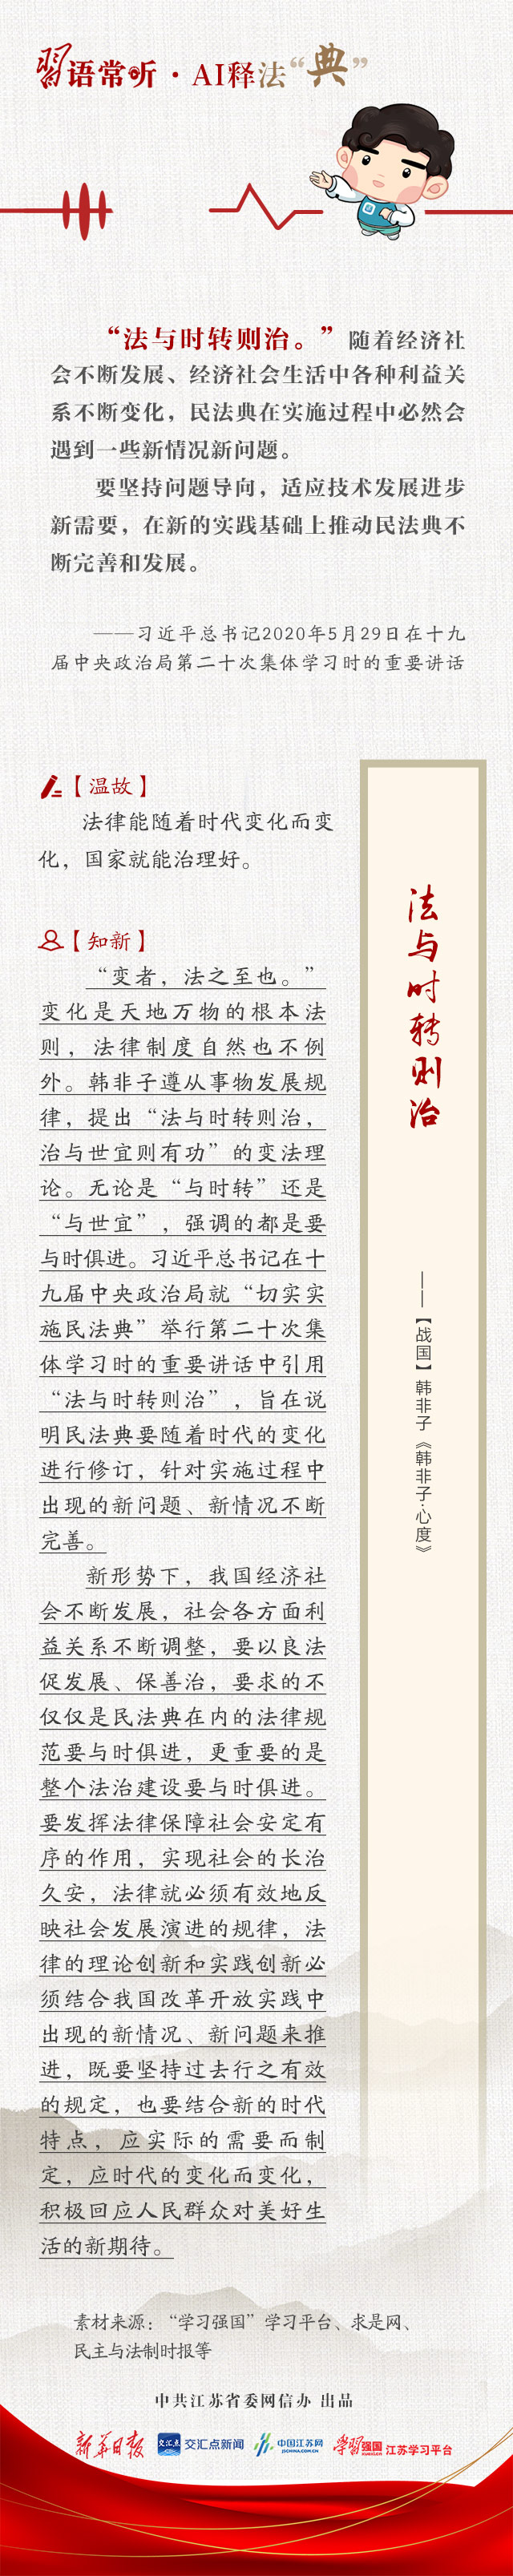 习语常听·AI释法“典”
“法与时转则治。”随着经济社
会不断发展、经济社会生活中各种利益关
系不断变化，民法典在实施过程中必然会
遇到一些新情况新问题。
要坚持问题导向，适应技术发展进步
新需要，在新的实践基础上推动民法典不
断完善和发展。
——习近平总书记2020年5月29日在十九
届中央政治局第二十次集体学习时的重要讲话
【温故】
法律能随着时代变化而变
化，国家就能治理好。
【知新】
“变者，法之至也。”
变化是天地万物的根本法
则，法律制度自然也不例
外。韩非子遵从事物发展规
律，提出“法与时转则治，
治与世宜则有功”的变法理
论。无论是“与时转”还是
“与世宜”，强调的都是要
与时俱进。习近平总书记在十
九届中央政治局就“切实实
施民法典”举行第二十次集
体学习时的重要讲话中引用
“法与时转则治”，旨在说
明民法典要随着时代的变化
进行修订，针对实施过程中
出现的新问题、新情况不断
完善。
新形势下，我国经济社
会不断发展，社会各方面利
益关系不断调整，要以良法
促发展、保善治，要求的不
仅仅是民法典在内的法律规
范要与时俱进，更重要的是
整个法治建设要与时俱进。
要发挥法律保障社会安定有
序的作用，实现社会的长治
久安，法律就必须有效地反
映社会发展演进的规律，法
律的理论创新和实践创新必
须结合我国改革开放实践中
出现的新情况、新问题来推
进，既要坚持过去行之有效
的规定，也要结合新的时代
特点，应实际的需要而制
定，应时代的变化而变化，
积极回应人民群众对美好生
活的新期待。
法与时转则治
——【战国】韩非子《韩非子·心度》
素材来源：“学习强国”学习平台、求是网、
民主与法制时报等
中共江苏省委网信办 出品
新华日报 交汇点 交汇点新闻 中国江苏网 JSCHINA.COM.CN 学习强国 XUEXI.CN 江苏学习平台